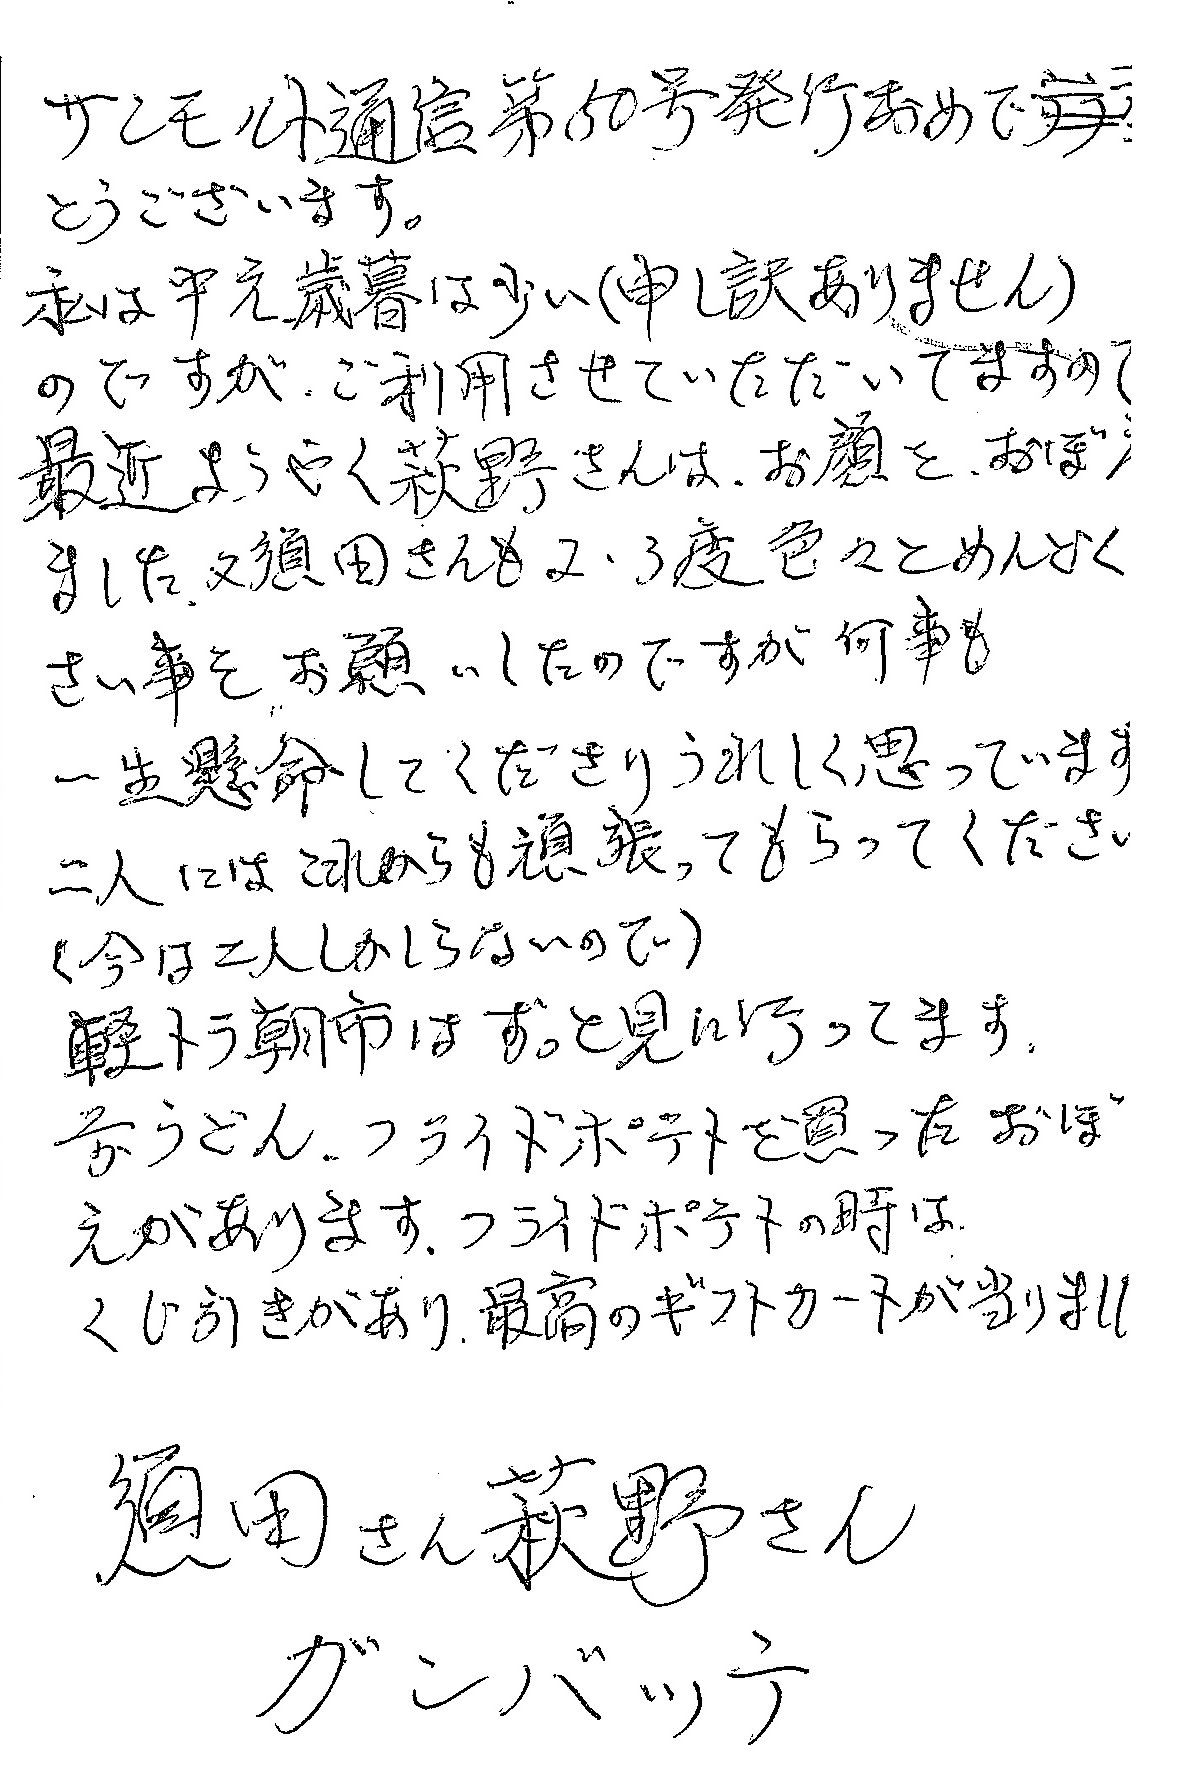 サンモルト通信第50号発行おめで
とうございます。
私は中元歳暮は少い(申し訳ありません)
のですが、ご利用させていただいてますので
最近ようやく萩野さんは、お顔を、おぼえ
ました、又須田さんも2・3度色々とめんどく
さい事を、お願いしたのですが何事も
一生懸命してくださりうれしく思っています
二人にはこれからも頑張ってもらってください
(今は二人しかしらないので)
軽トラ朝市はずっと見に行ってます。
うどん、フライドポテトを買ったおぼ
えがあります、フライドポテトの時は、
くじ引きがあり、最高のギフトカードが当りまし
須田さん萩野さん
ガンバッテ